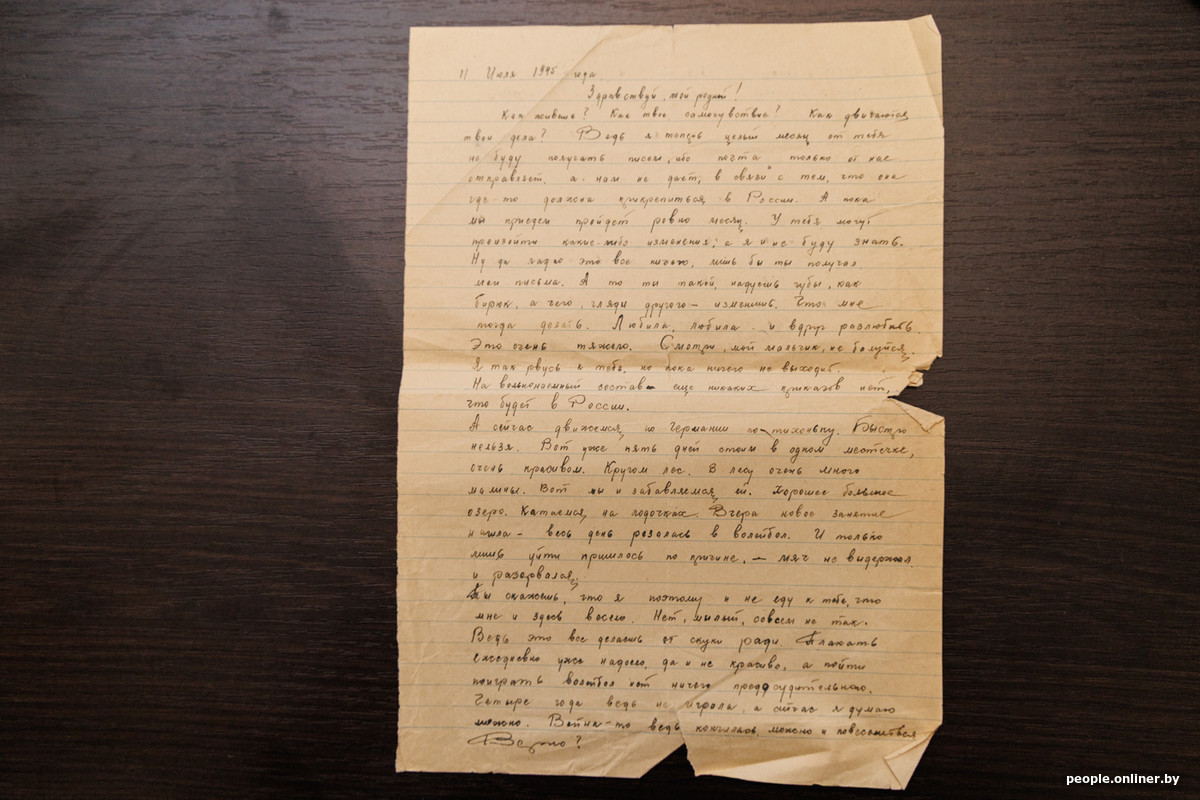 11 Июля 1945 года.
Здравствуй, мой родной!
Как живешь? Как твое самочувствие? Как двигаются
твои дела? Ведь я теперь целый месяц от тебя
не буду получать писем, ибо почта только от нас
отправляет, а нам не дает, в связи с тем, что она
где-то должна прикрепиться в России. А пока
мы приедем пройдет ровно месяц. У тебя могут
произойти какие-либо изменения, а я и не буду знать.
Ну да ладно это все ничего, лишь бы ты получал
мои письма. А то ты такой, надуешь губы, как
бирюк, а чего, гляди другого – изменишь. Что мне
тогда делать. Любила, любила и вдруг разлюбить.
Это очень тяжело. Смотри, мой мальчик, не балуйся.
Я так рвусь к тебе, но пока ничего не выходит.
На вольнонаемный состав еще никаких приказов нет,
что будет в России.
А сейчас движемся по Германии по-тихоньку. Быстро
нельзя. Вот уже пять дней стоим в одном местечке,
очень красивом. Кругом лес. В лесу очень много
малины. Вот мы и забавляемся ей. Хорошее большое
озеро. Катаемся на лодочках. Вчера новое занятие
нашла – весь день резалась в волейбол. И только
лишь уйти пришлось по причине, – мяч не выдержал
и разорвался.
Ты скажешь, что я поэтому и не еду к тебе, что
мне и здесь весело. Нет, милый, совсем не так.
Ведь это все делаешь от скуки ради. Плакать
ежедневно уже надоело, да и не красиво, а пойти
поиграть волейбол нет ничего предосудительного.
Четыре года ведь не играла, а сейчас я думаю
можно. Война-то ведь кончилась, можно и повеселиться
Верно?
people.onliner.by